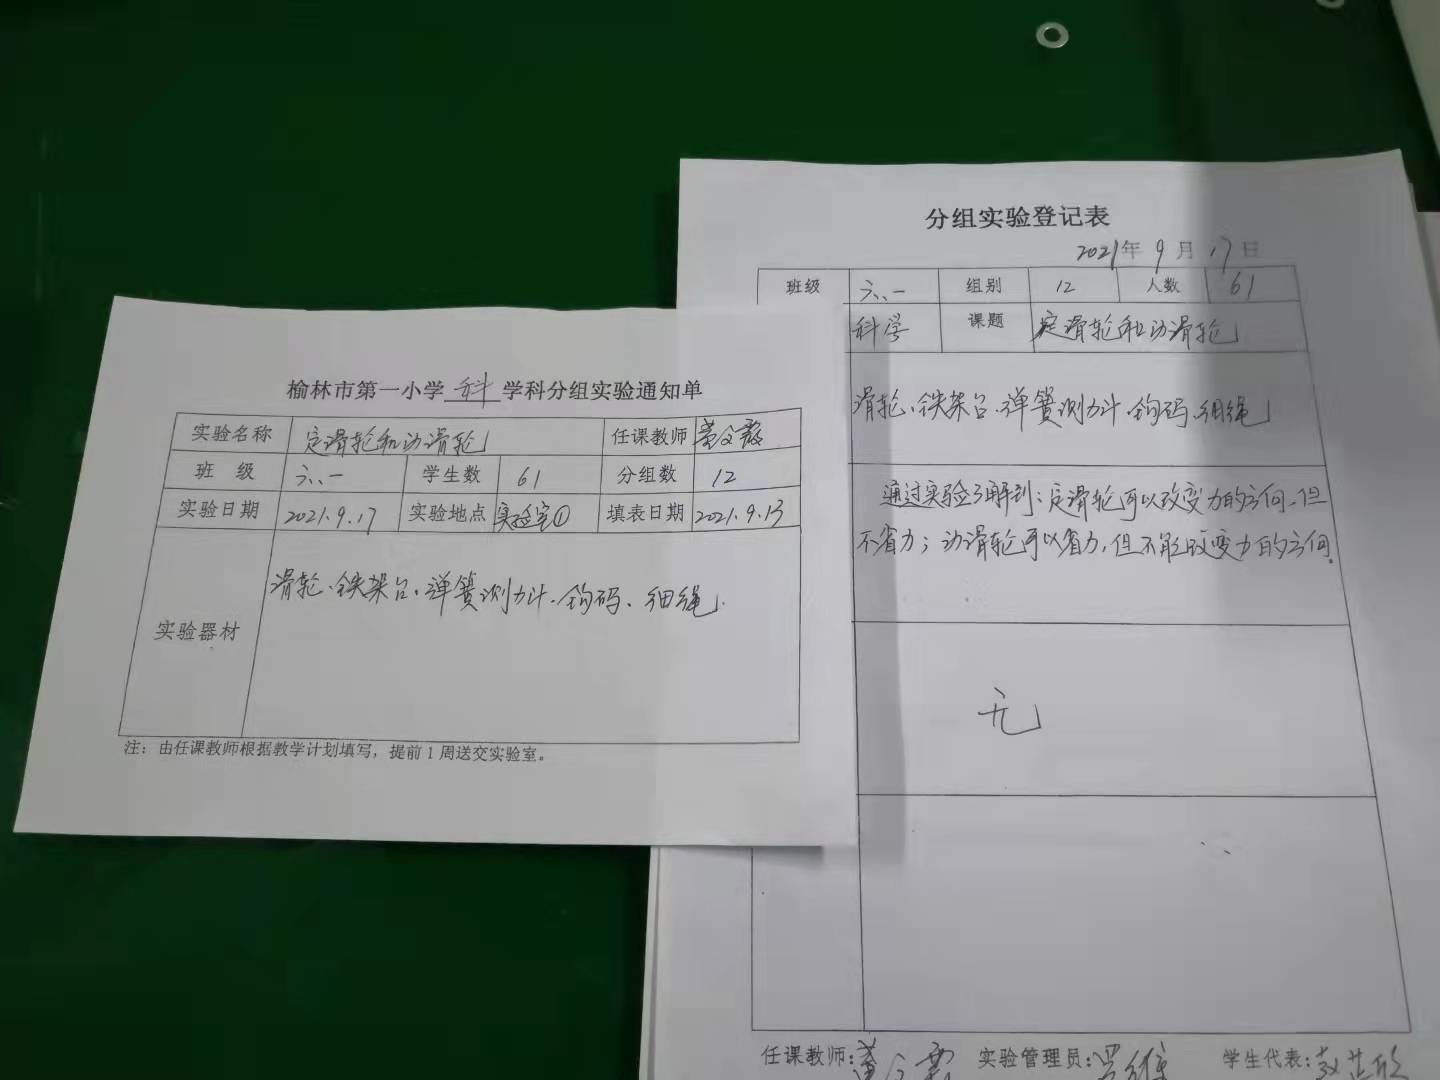 榆林市第一小学 科 学科分组实验通知单
实验名称 定滑轮和动滑轮 任课教师
班 级 六、一 学生数 61 分组数 12
实验日期 2021.9.17 实验地点 实验室① 填表日期 2021.9.13
实验器材 滑轮、铁架台、弹簧测力计、钩码、细绳
注：由任课教师根据教学计划填写，提前1周送交实验室。
分组实验登记表
2021年 9 月 17 日
班级 六、一 组别 12 人数 61
科学 课题 定滑轮和动滑轮
滑轮、铁架台、弹簧测力计、钩码、细绳
通过实验了解到：定滑轮可以改变力的方向，但
不省力；动滑轮可以省力，但不能改变力的方向。
无
任课教师： 实验管理员： 学生代表：